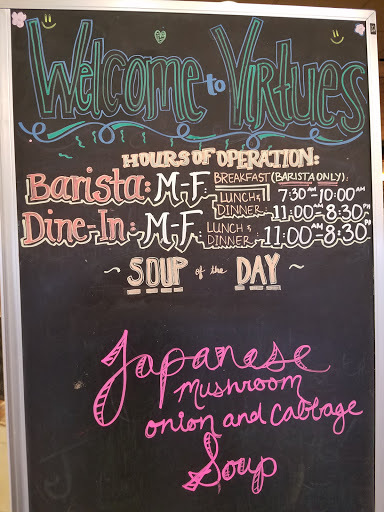 Welcome to Virtues
HOURS OF OPERATION:
Barista: M-F: BREAKFAST (BARISTA ONLY): 7:30 AM - 10:00 AM
LUNCH & DINNER: 11:00 AM - 8:30 PM
Dine-In: M-F: LUNCH & DINNER: 11:00 AM - 8:30 PM
~ SOUP of the DAY ~
Japanese
Mushroom
onion and Cabbage
Soup